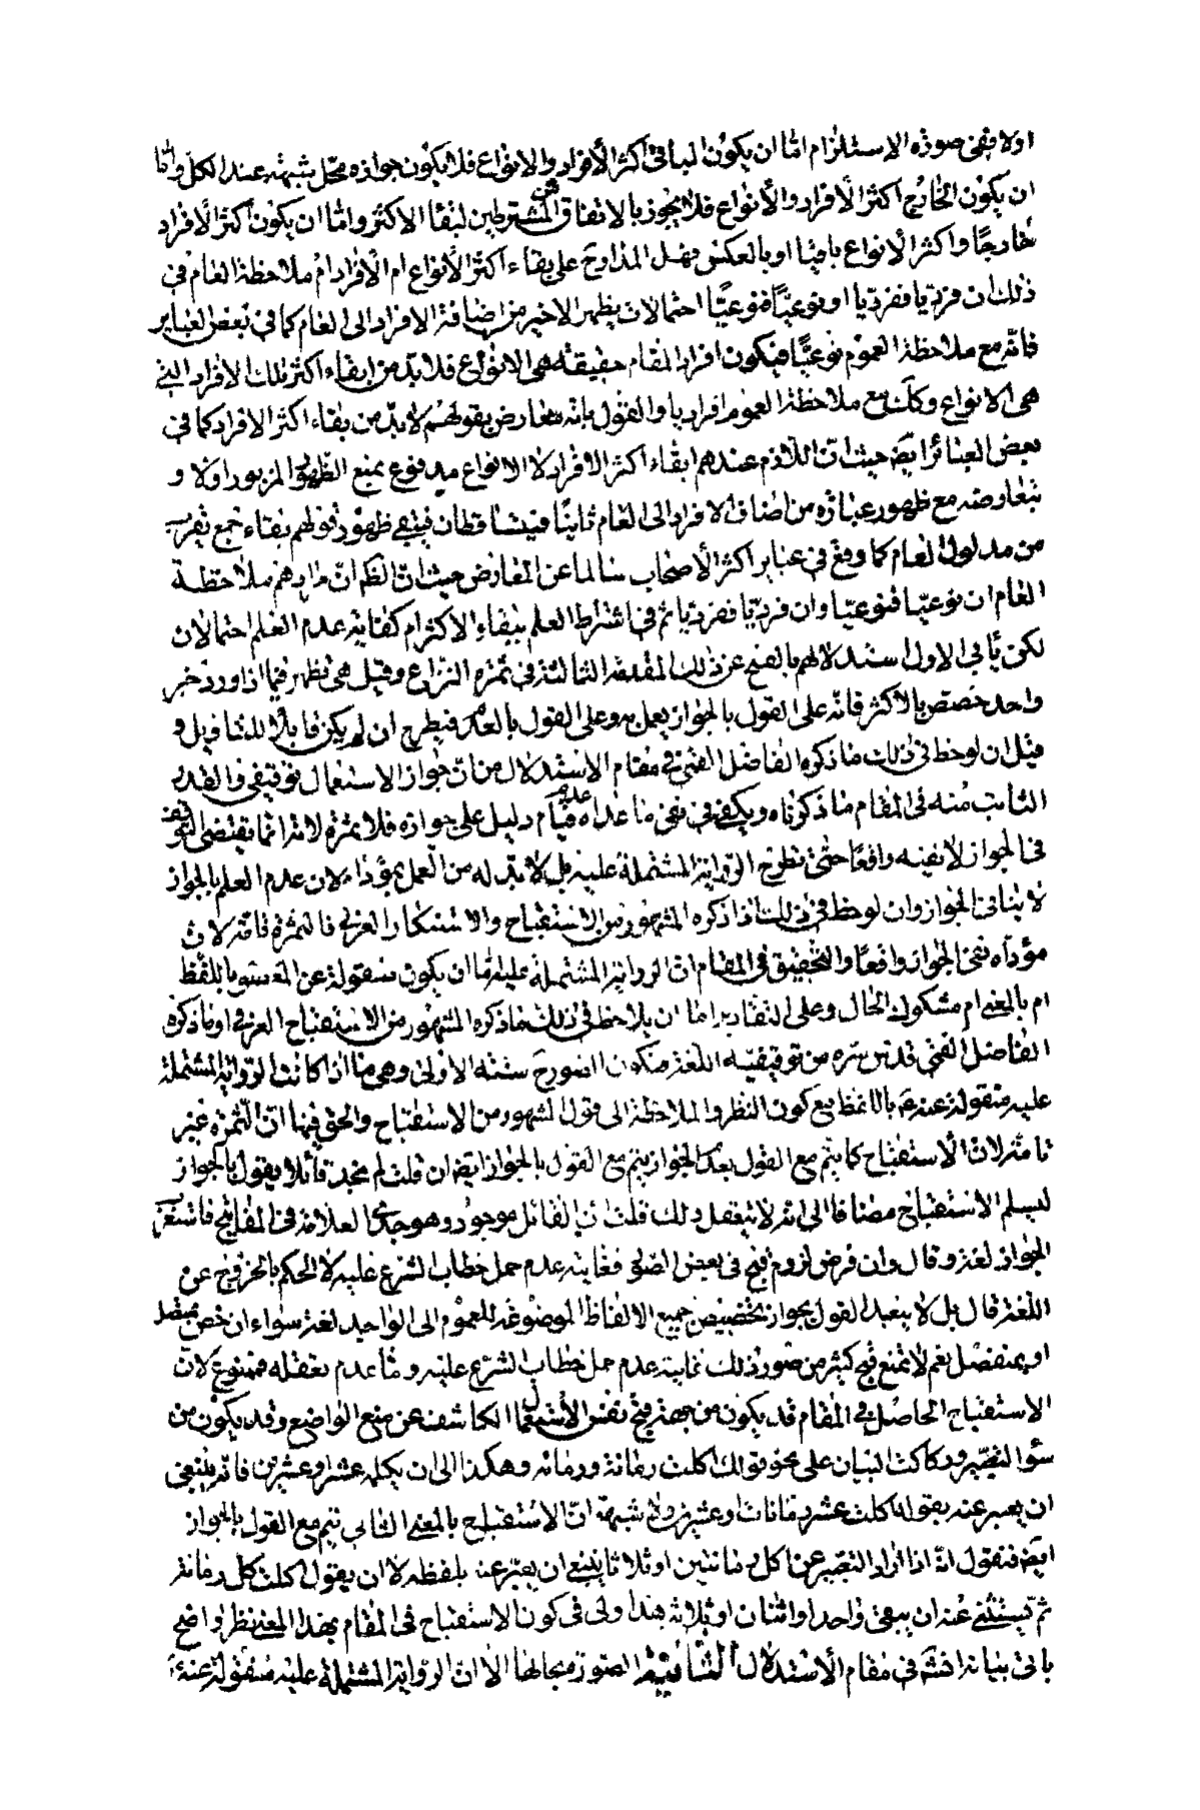 اولا ففى صورة الاستلزام امّا ان يكون الباقى اكثر الأفراد والانواع فلا يكون جوازه محلّ شبهة عند الكلّ وامّا
ان يكون الخارج اكثر الأفراد والأنواع فلا يجوز بالاتفاق من المشترطين لبقاء الاكثر وامّا ان يكون اكثر الأفراد
خارجًا واكثر الأنواع باقيا او بالعكس فهل المدار ح على بقاء اكثر الأنواع ام الأفراد ام ملاحظة العام فى
ذلك ان فرديّا ففرديّا او نوعيّا فنوعيّا احتمالات يظهر الاخير من اضافة الافراد الى العام كما فى بعض العباير
فانّه مع ملاحظة العموم نوعيّا فيكون افراد المقام حقيقة هى الانواع فلا بدّ من ابقاء اكثر تلك الافراد التى
هى الانواع وكك مع ملاحظة العموم افراديا والقول بانه معارض بقولهم لا بدّ من بقاء اكثر الافراد كما فى
بعض العبائر ايضا حيث انّ اللّازم عندهم ابقاء اكثر الافراد لا الانواع مدفوع بمنع الظّهور المزبور اولا و
بتعارضه مع ظهور عبارة من اضاف الافراد الى العام ثانيًا فيتساقطان فيبقى ظهور قولهم بقاء جمع يقرب
من مدلول العام كما وقع فى عباير اكثر الأصحاب سالما عن المعارض حيث انّ الظّم انّ مرادهم ملاحظة
العام ان نوعيّا فنوعيّا وان فرديّا ففرديّا ثم فى اشتراط العلم ببقاء الاكثر ام كفاية عدم العلم احتمالان
لكن يأبى الاول استدلالهم بالقبح عن ذلك المقدمة الثالثة فى ثمرة النزاع وقيل هى تظهر فيما اذا ورد خبر
واحد خصّص بالاكثر فانّه على القول بالجواز يعمل به وعلى القول بالعدم فيطرح ان لم يكن قابلًا للتاويل و
قيل ان لوحظ فى ذلك ما ذكره الفاضل القمّى فى مقام الاستدلال من انّ جواز الاستعمال توقيفى والقدر
الثابت منه فى المقام ما ذكرناه ويكفى فى نفى ما عداه عدم قيام دليل على جوازه فلا ثمرة لانه انّما يقتضى التوقف
فى الجواز لا نفيه واقعًا حتّى نطرح الرّواية المشتملة عليه بل لا بدّ له من العمل بمؤداه لان عدم العلم بالجواز
لا ينافى الجواز وان لوحظ فى ذلك ما ذكره المشهور من الاستقباح والاستنكار العرفى فالثمرة تامّة لانّ
مؤدّاه نفى الجواز واقعًا والتّحقيق فى المقام انّ الرواية المشتملة عليه امّا ان يكون منقولة عن المعصوم باللّفظ
ام بالمعنى ام مشكوك الحال وعلى التقادير امّا ان يلاحظ فى ذلك ما ذكره المشهور من الاستقباح العرفى او ما ذكره
الفاضل القمّى قدّس سرّه من توقيفيّة اللّغة فيكون الصور ح ستة الاولى وهى ما اذا كانت الرّواية المشتملة
عليه منقولة عنه ع باللّفظ مع كون النظر والملاحظة الى قول المشهور من الاستقباح والحق فيها انّ الثّمرة غير
تامّة لانّ الأستقباح كما يتمّ مع القول بعدم الجواز يتم مع القول بالجواز ايضا ان قلت لم نجد قائلا يقول بالجواز
ليسلم الاستقباح مضافا الى انه لا يتعقل ذلك قلت انّ القائل موجود وهو جدّى العلامة فى المفاتيح فاستقرب
الجواز لغة وقال وان فرض لزوم قبح فى بعض الصّور فغايته عدم حمل خطاب الشرع عليه لا الحكم بالخروج عن
اللّغة قال بل لا يبعد القول بجواز تخصيص جميع الالفاظ الموضوعة للعموم الى الواحد لغة سواء ان خصّ بمتصل
او بمنفصل نعم لا نمنع قبح كثير من صور ذلك غايته عدم حمل خطاب الشرع عليه وامّا عدم تعقله فممنوع لانّ
الاستقباح الحاصل فى المقام قد يكون من جهة قبح نفس الأستعمال الكاشفة عن منع الواضع وقد يكون من
سؤ التّعبير وركاكت البيان على نحو قولك اكلت رمّانة ورمانه وهكذا الى ان يكمله عشرا وعشرين فانّه ينبغى
ان يعبر عنه بقوله اكلت عشر رمّانات او عشرين ولا شبهة انّ الاستقباح بالمعنى الثانى يتم مع القول بالجواز
ايضا فنقول انّه اذا اراد التعبير عن اكل رمانتين او ثلاثا ينبغى ان يعبّر عنه بلفظه لا ان يقول اكلت كل رمانة
ثم تستثنى عنه ان يبقى واحد او اثنان او ثلاثة هذا ولى فى كون الاستقباح فى المقام بهذا المعنى نظر واضح
يأتى بيانه انشه فى مقام الأستدلال الثّانية الصّورة بحالها الا ان الرّواية المشتملة عليه منقولة عنه ع